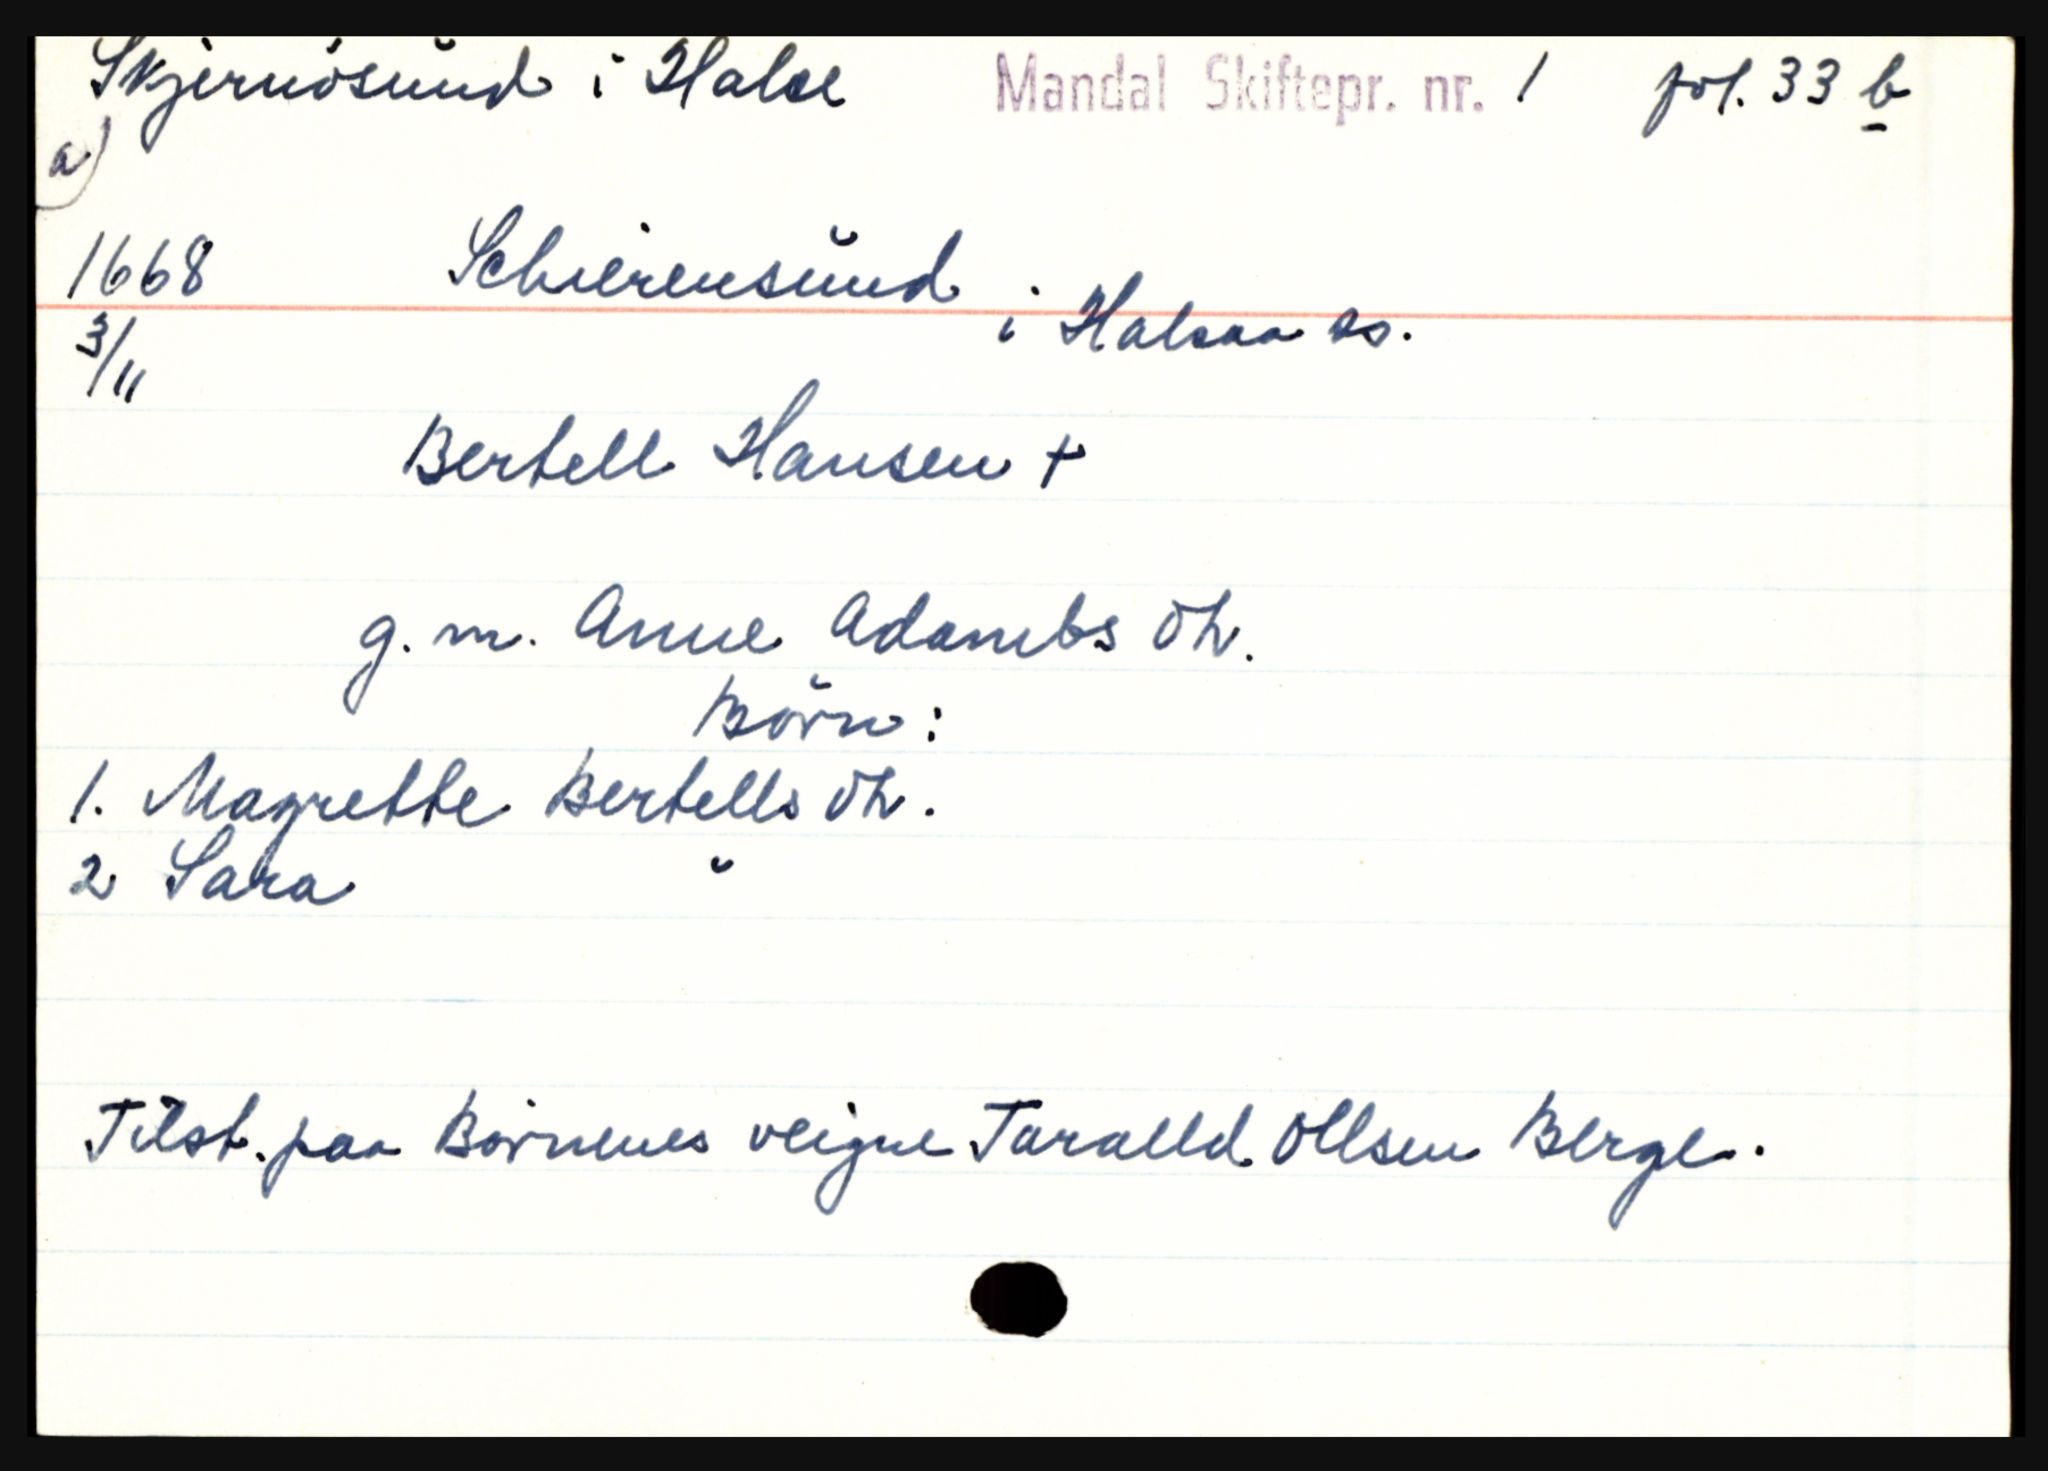 Skjernösund i Halse Mandal Skiftepr. nr. 1 fol. 33 b
a)
1668 Schierensund
3/11 i Halsaa ss.
Bertell Hansen +
g. m. Anne Adambs dtr.
Börn:
1. Magrette Bertells dtr.
2 Sara "
Tilst. paa Börnenes veigne Taralld Ollsen Berge.